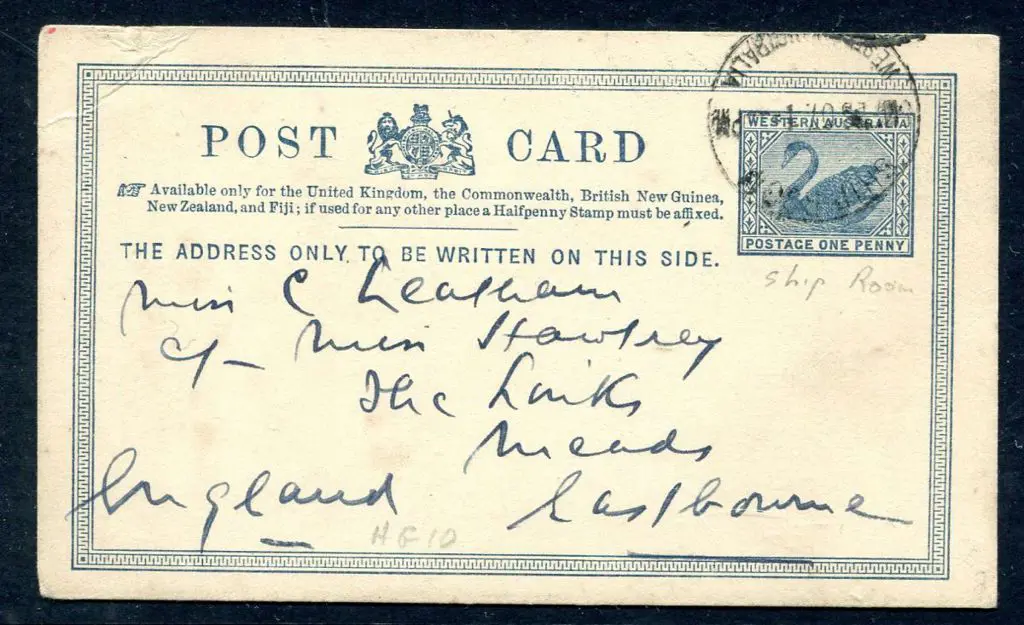 POST CARD
Available only for the United Kingdom, the Commonwealth, British New Guinea,
New Zealand, and Fiji; if used for any other place a Halfpenny Stamp must be affixed.
THE ADDRESS ONLY TO BE WRITTEN ON THIS SIDE.
WESTERN AUSTRALIA
POSTAGE ONE PENNY
W. AUSTRALIA
Ship Room
Miss C Leatham
c/- Miss Hawtrey
The Links
Meads
England Eastbourne
HG 10